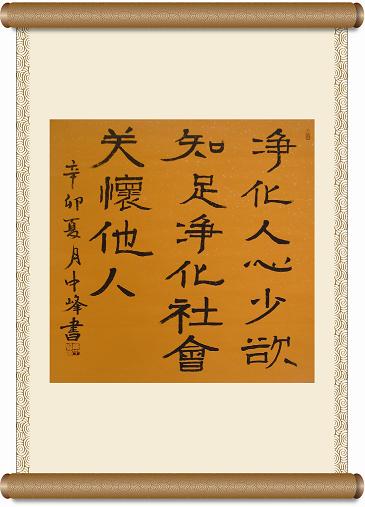 净化人心少欲
知足净化社會
关懷他人
辛卯夏月中峰書